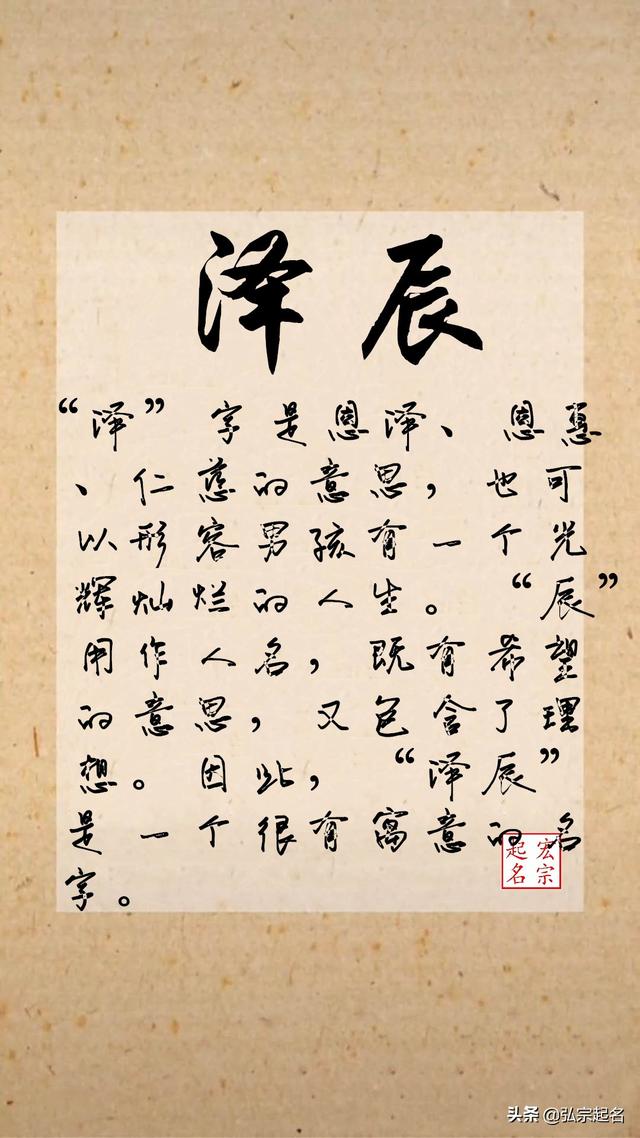 泽辰
“泽” 字是恩泽、 恩惠
、仁慈的意思， 也可
以形容男孩有一个光
辉灿烂的人生。 “辰”
用作人名， 既有希望
的意思， 又包含了理
想。因此， “泽辰”
是一个很有寓意的名
字。
宏宗
起名
头条 @弘宗起名